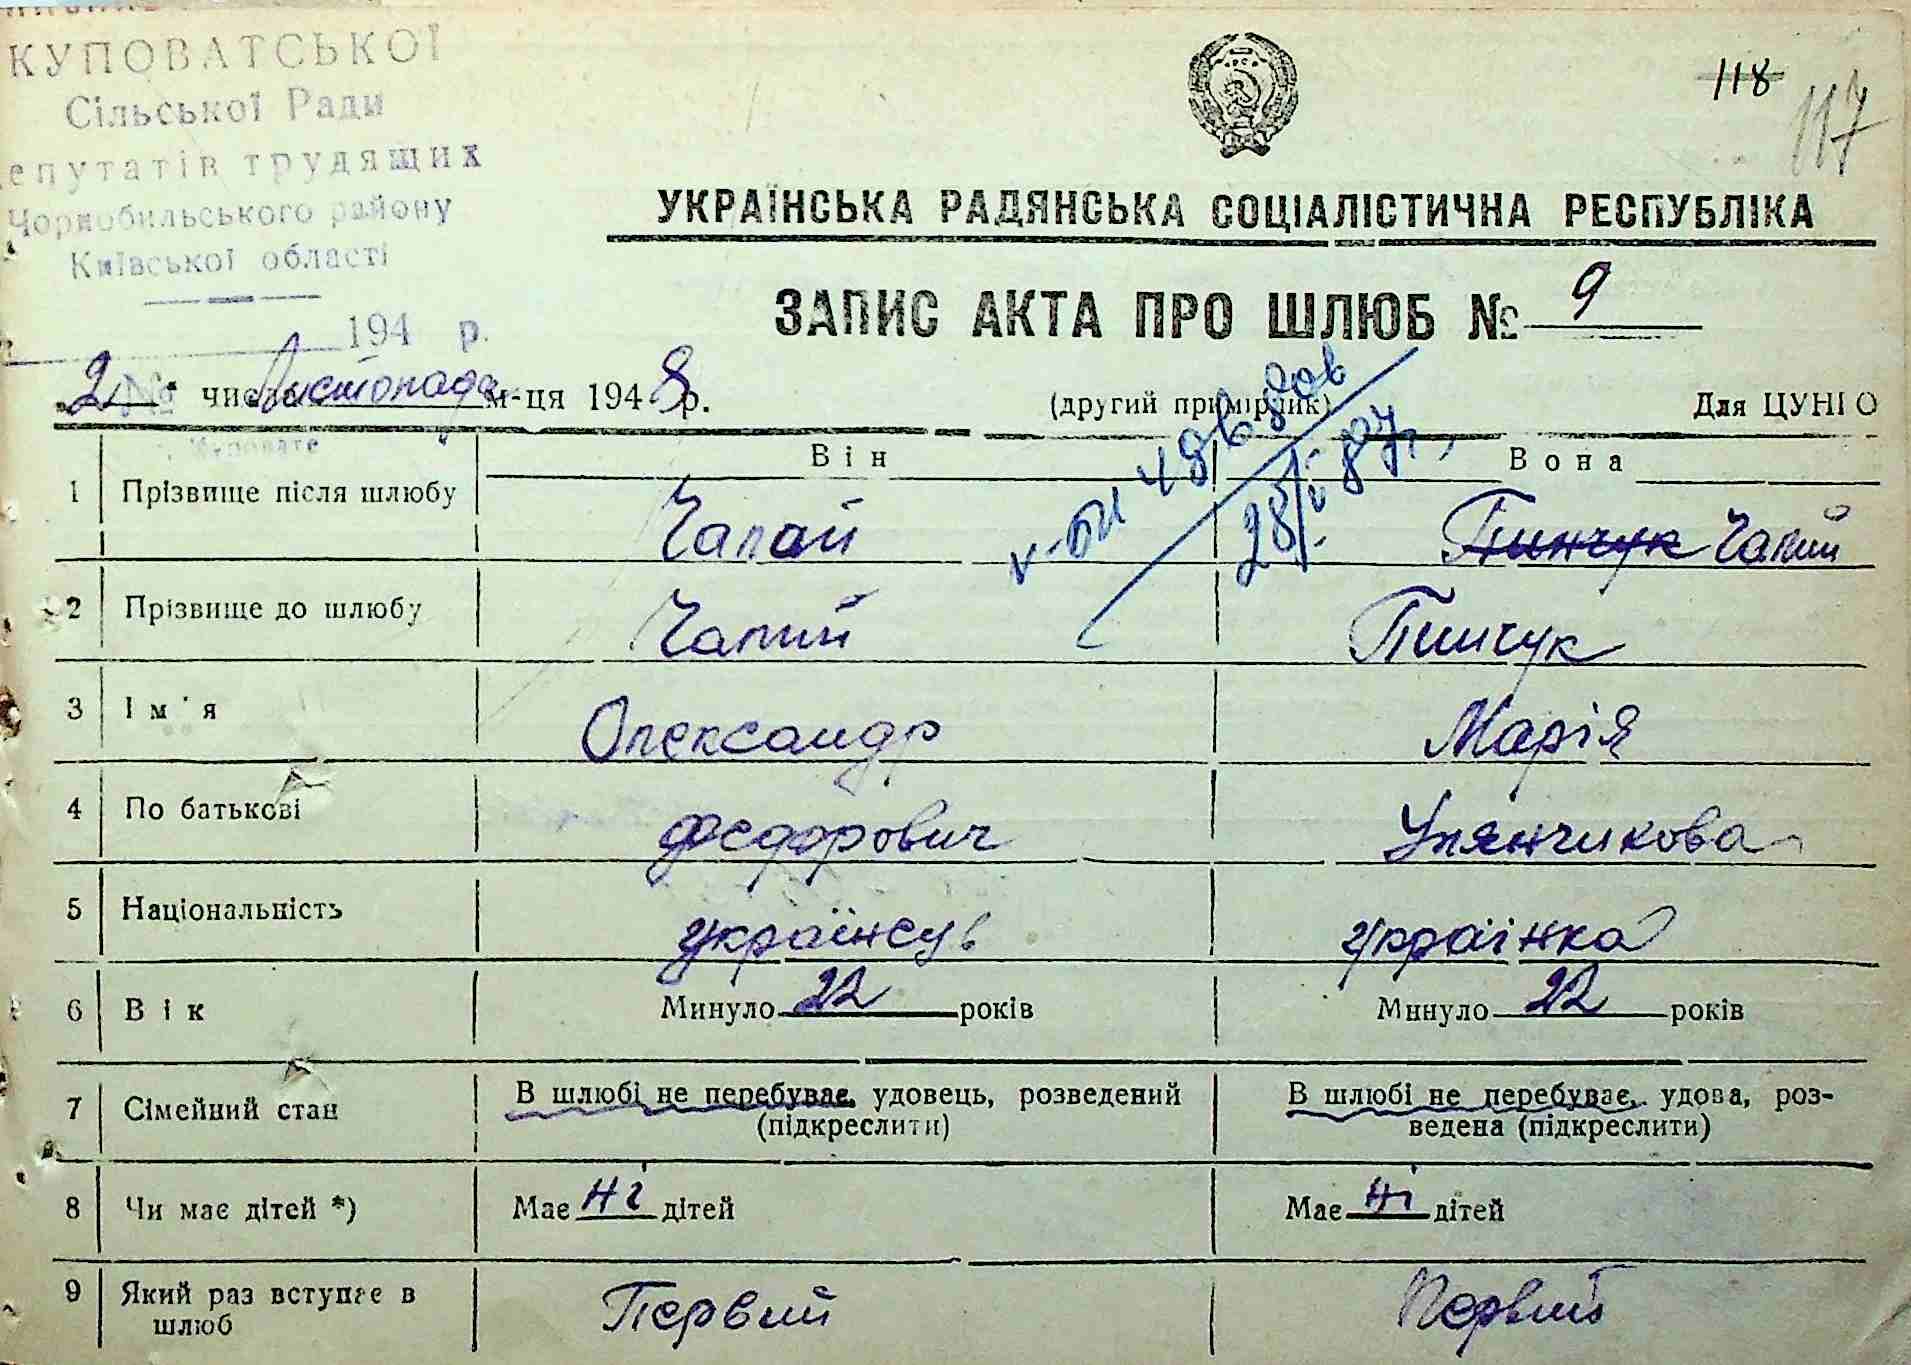 КУПОВАТСЬКОЇ
Сільської Ради
епутатів трудящих
Чорнобильського району
Київської області
194 р.
118
117
УКРАЇНСЬКА РАДЯНСЬКА СОЦІАЛІСТИЧНА РЕСПУБЛІКА
ЗАПИС АКТА ПРО ШЛЮБ № 9
2 числа Листопада м-ця 1948 р.
(другий примірник)
Для ЦУНГО
Він
Вона
1 Прізвище після шлюбу Чапай Пинчук Чапий
2 Прізвище до шлюбу Чапий Пинчук
3 Ім'я Олександр Марія
4 По батькові Федорович
5 Національність українець українка
6 Вік Минуло 22 років Минуло 22 років
7 Сімейний стан В шлюбі не перебуває, удовець, розведений (підкреслити) В шлюбі не перебуває, удова, роз-
ведена (підкреслити)
8 Чи має дітей *) Має ні дітей Має ні дітей
9 Який раз вступає в шлюб Первий Первий